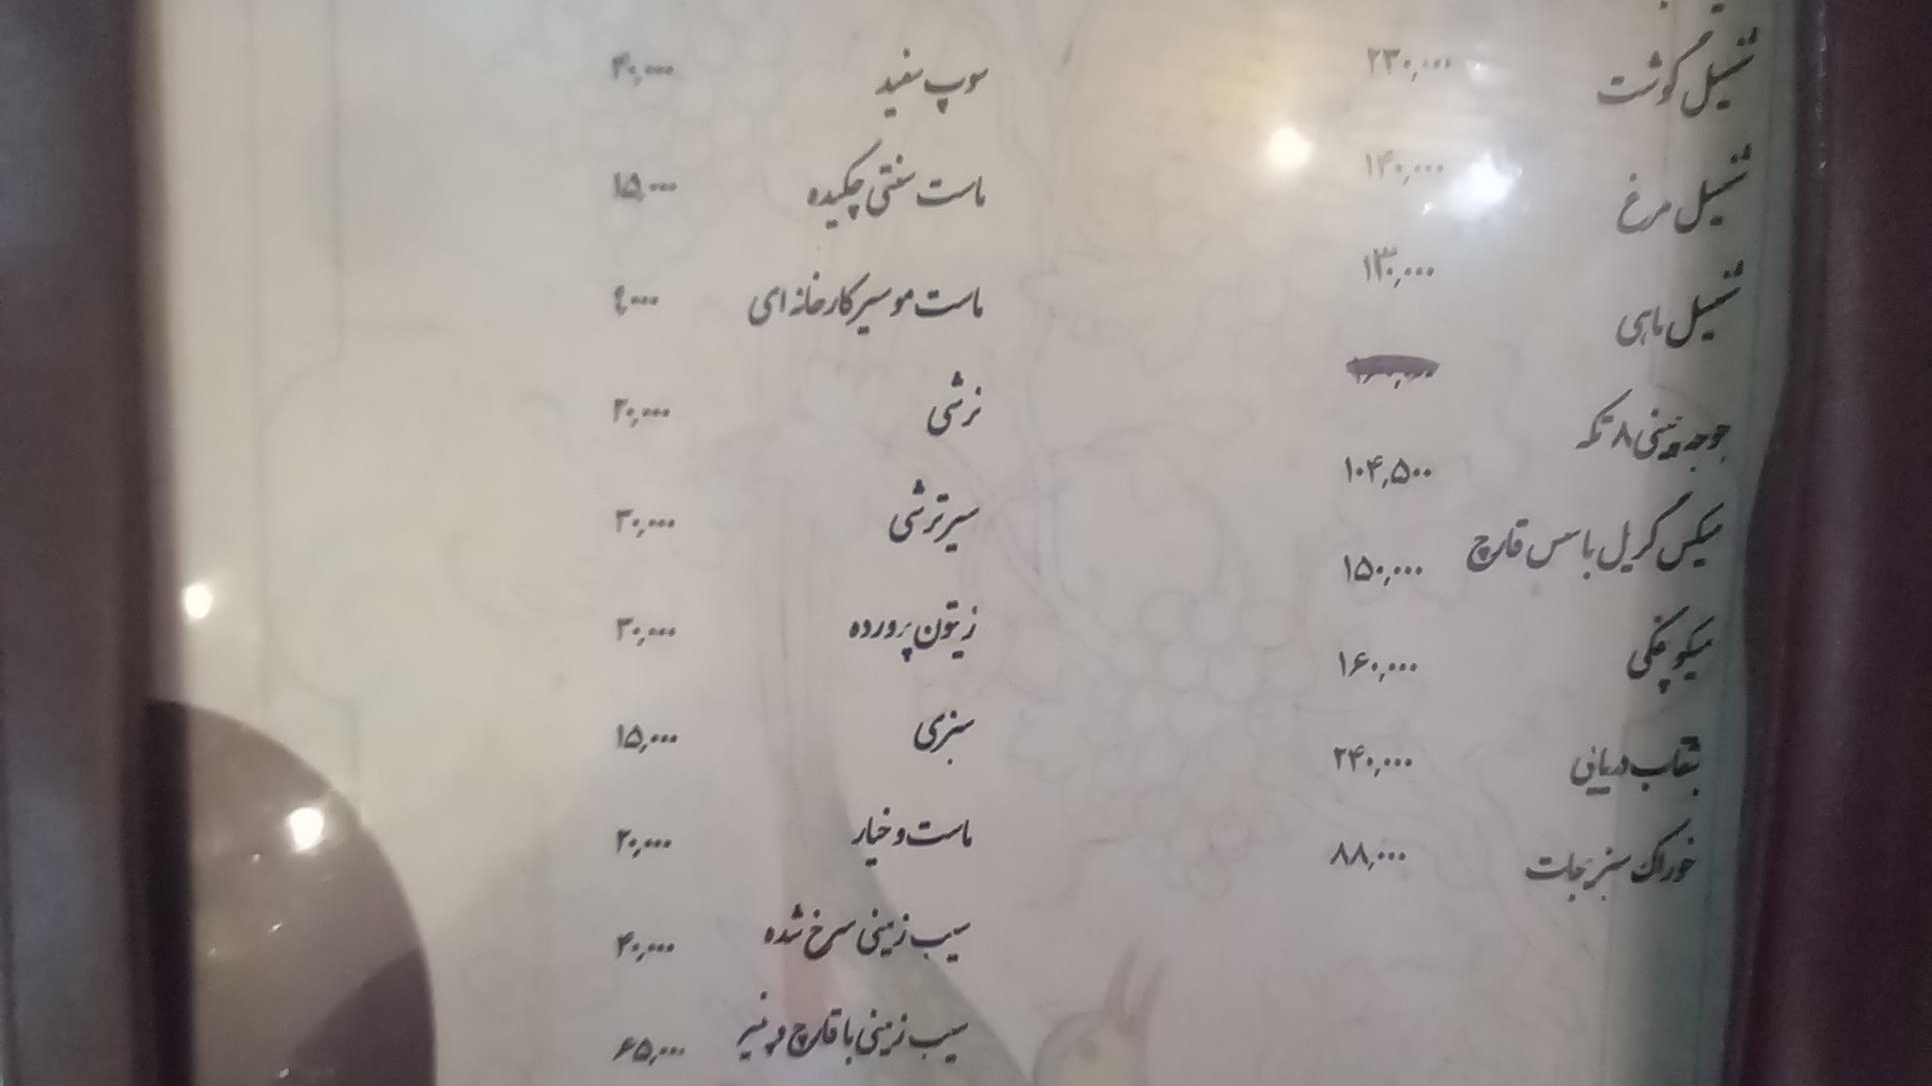 شنیسل گوشت ۲۳۰,۰۰۰
شنیسل مرغ ۱۴۰,۰۰۰
شنیسل ماهی ۱۳۰,۰۰۰
جوجه چینی ۸ تکه
۱۰۴,۵۰۰
میکس گریل با سس قارچ ۱۵۰,۰۰۰
میگو پفکی ۱۶۰,۰۰۰
بشقاب دریایی ۲۴۰,۰۰۰
خوراک سبزیجات ۸۸,۰۰۰
سوپ سفید ۴۰,۰۰۰
ماست سنتی چکیده ۱۵,۰۰۰
ماست موسیر کارخانه ای
ترشی ۲۰,۰۰۰
سیر ترشی ۳۰,۰۰۰
زیتون پرورده ۳۰,۰۰۰
سبزی ۱۵,۰۰۰
ماست و خیار ۲۰,۰۰۰
سیب زمینی سرخ شده ۴۰,۰۰۰
سیب زمینی با قارچ و پنیر ۶۵,۰۰۰